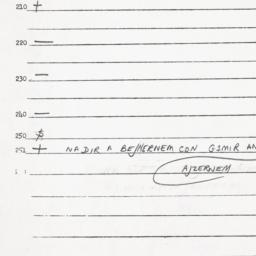 210 +
220 —
230 —
240 —
250 $
251 + NADIR A BEJHERNEM CON GIMIR AN
AJZERNEM